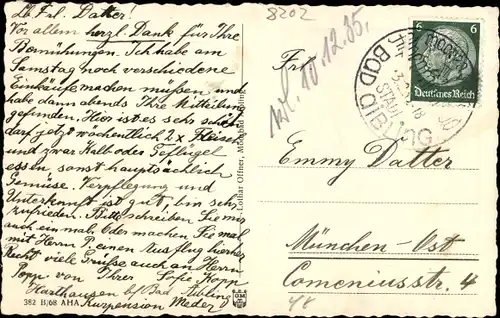 Lb. Frl. Datter!
Vor allem herzl. Dank für Ihre
Bemühungen. Ich habe am
Samstag noch verschiedene
Einkäufe machen müssen und
habe dann abends Ihre Mitteilung
gefunden. Hier ist es sehr schön
darf jetzt wöchentlich 2 x Fleisch
und zwar Kalb oder Geflügel
essen, sonst hauptsächlich
Gemüse. Verpflegung und
Unterkunft ist gut, bin sehr
zufrieden. Bitte schreiben Sie mir
auch ein mal. Oder machen Sie mal
mit Herrn P. einen Ausflug hierher.
Recht viele Grüße auch an Herrn
Popp von Ihrer Sofie Kopp
Harthausen b/ Bad Aibling
Kurpension Meder
382 B/68 AHA
Lothar Offner, Moorbad Aibling
8202
10.12.35.
6 6
Deutsches Reich
BAD AIBLING
Frl.
Emmy Datter
München-Ost
Comeniusstr. 4